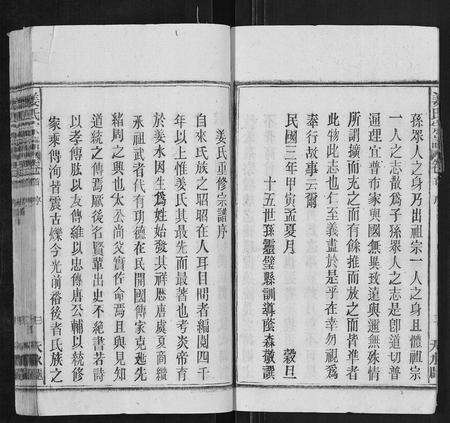 孫眾人之身乃出祖宗一人之身且體祖宗
一人之志散為子孫眾人之志是即道切普
渥理宜普布家與國無異致遠與邇無殊情
所謂擴而充之而有餘推而放之而皆準者
此物此志也仁至義盡於是乎在幸勿視為
奉行故事云爾
民國三年甲寅孟夏月 穀旦
十五世孫靈璧縣訓導蔭森敬譔
姜氏重修宗譜序
自來氏族之昭昭在人耳目間者編閱四千
年以上惟姜氏其最先而最著也考炎帝育
於姜水因生為姓始發其祥歷唐虞夏商纘
承祖武者代有功德在民開國傳家克迪先
緒周之興也太公尚父實作命焉且與見知
道統之傳焉厥後名賢輩出史不絕書若詩
以孝傳肱以友傳維以忠傳唐公輔以兢修
家乘傳洵晉震古爍今光前裕後者氏族之
姜氏宗譜 序
天水堂